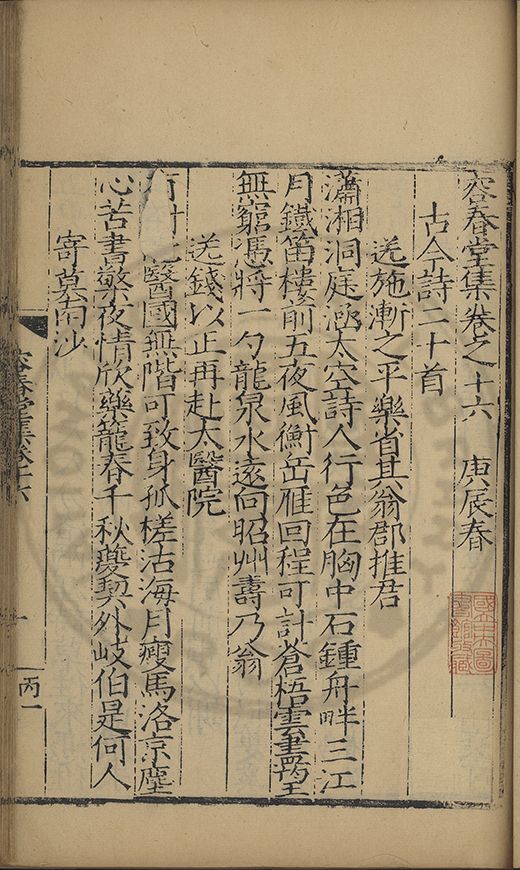 容春堂集卷之十六 庚辰春
古今詩二十首
送施漸之平樂省其翁郡推君
瀟湘洞庭涵太空詩人行色在胸中石鍾舟畔三江
月鐵笛樓前五夜風衡岳雁回程可計蒼梧雲盡望
無窮馮將一勺龍泉水遠向昭州壽乃翁
送錢以正再赴太醫院
醫國無階可致身孤槎沽海月瘦馬洛京塵
心苦書檠夜情欣藥籠春千秋夔契外岐伯是何人
寄莫南沙
容春堂集卷十六
一
丙一